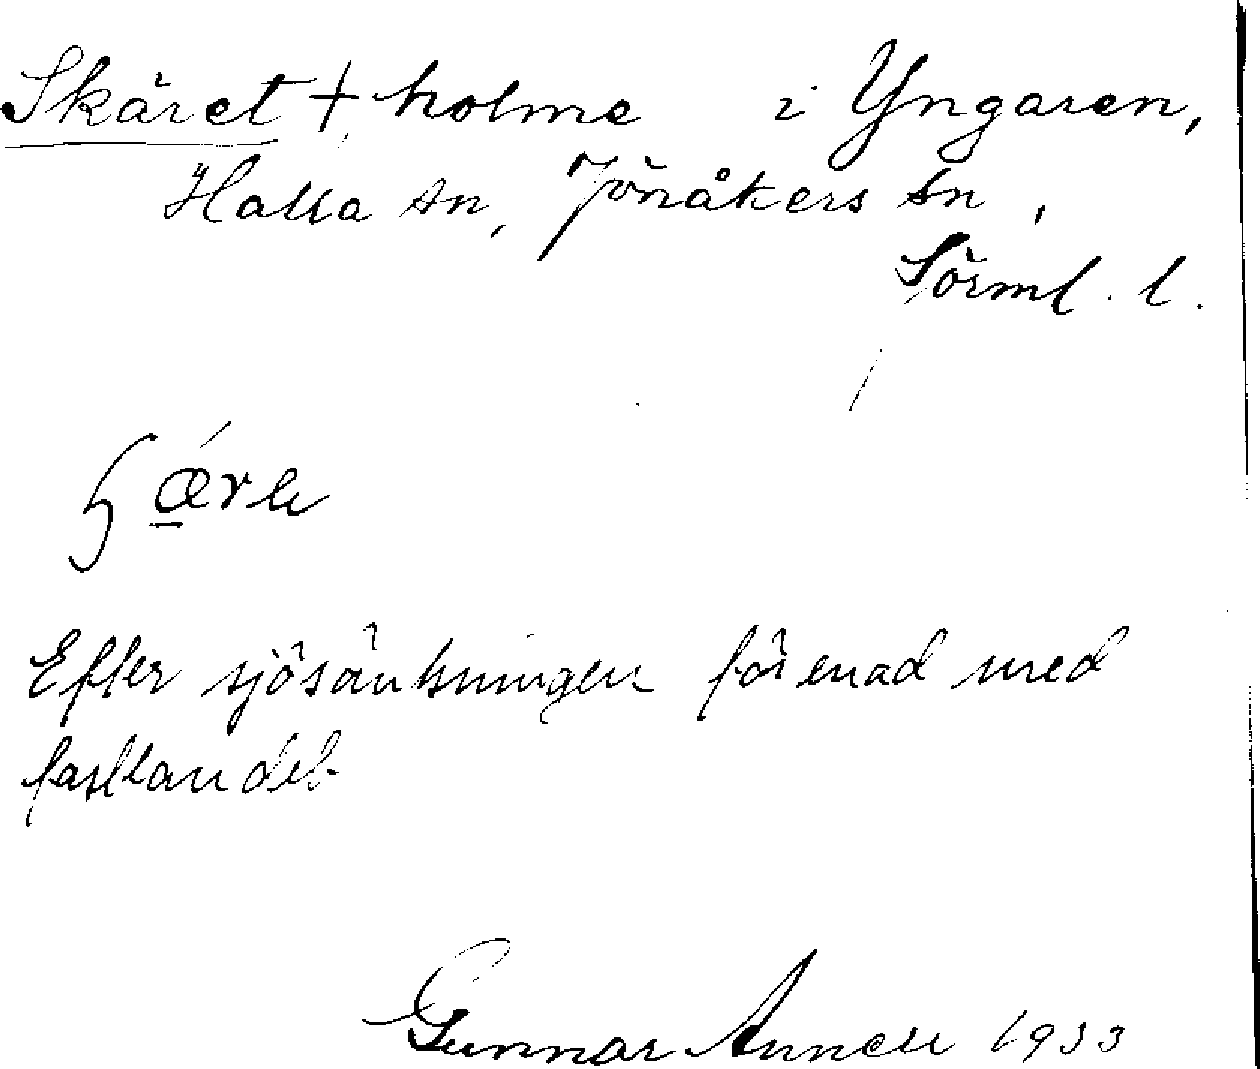 Skäret + holme i Yngaren,
Halla sn, Jönåkers hd,
Sörml. l.
Efter sjösänkningen förenad med
fastlandet
Gunnar Annell 1933